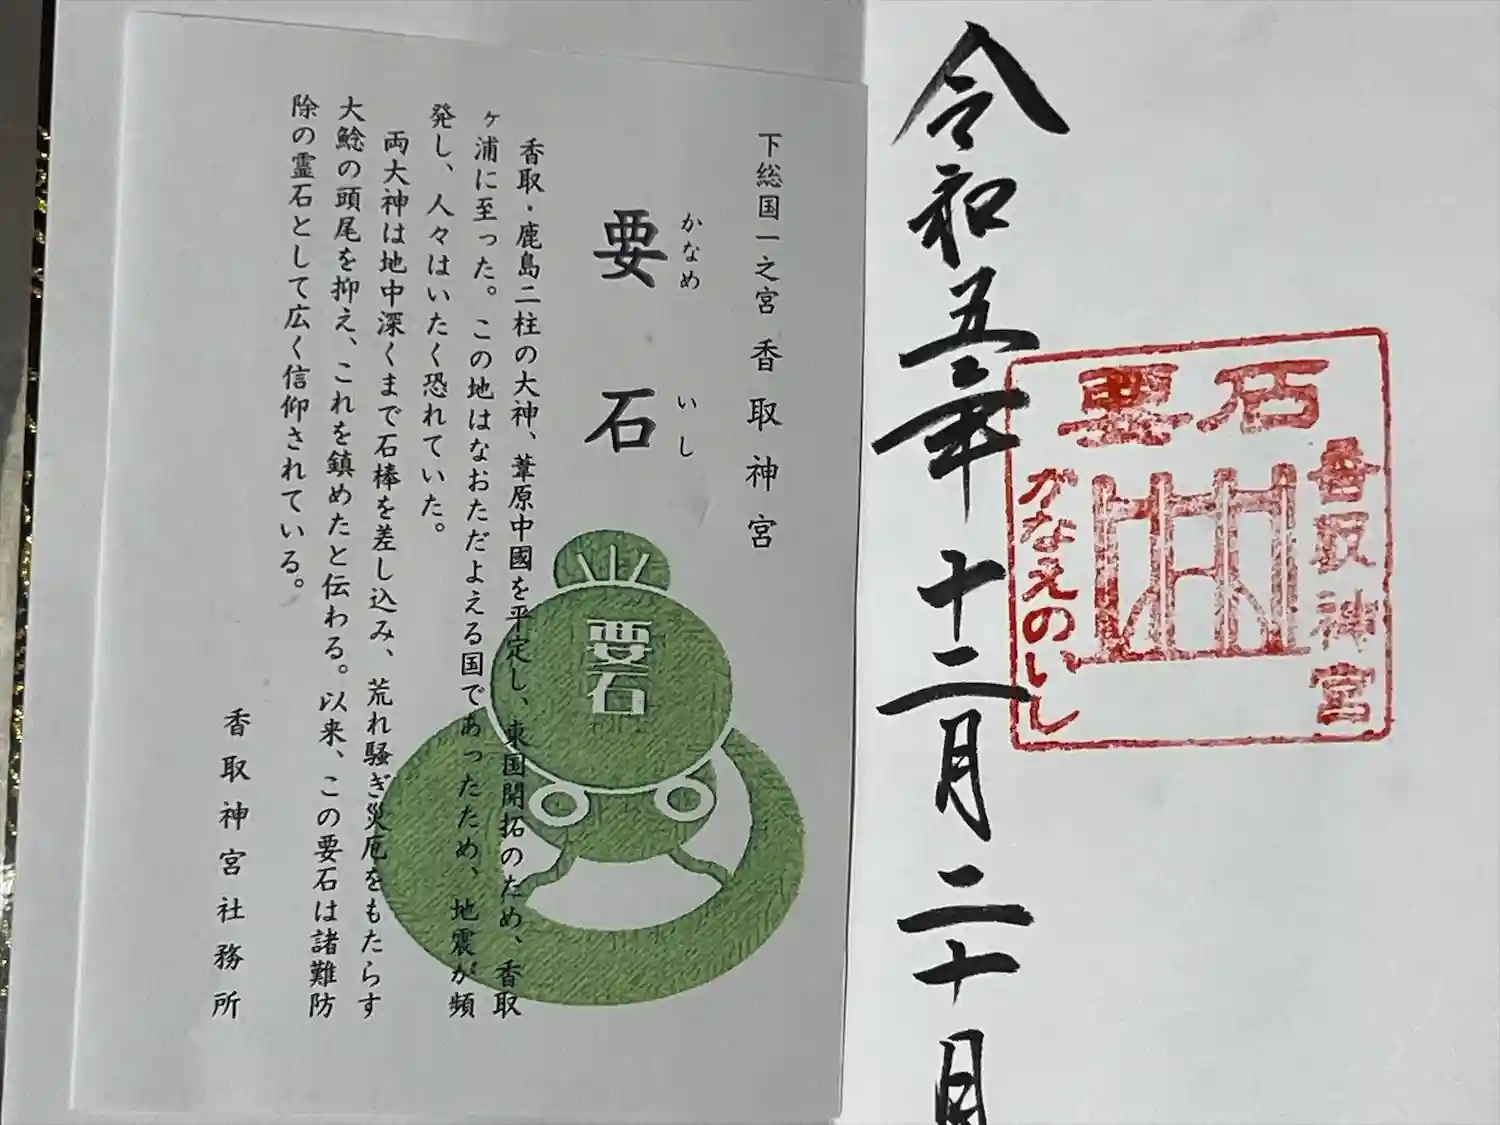 要石
香取神宮
かなえのいし
令和五年十二月二十日
下総国一之宮 香取神宮
かなめ いし
要石
香取・鹿島二柱の大神、葦原中國を平定し、東国開拓のため、香取
ヶ浦に至った。この地はなおただよえる国であったため、地震が頻
発し、人々はいたく恐れていた。
両大神は地中深くまで石棒を差し込み、荒れ騒ぎ災厄をもたらす
大鯰の頭尾を抑え、これを鎮めたと伝わる。以来、この要石は諸難防
除の霊石として広く信仰されている。
香取神宮社務所
要石